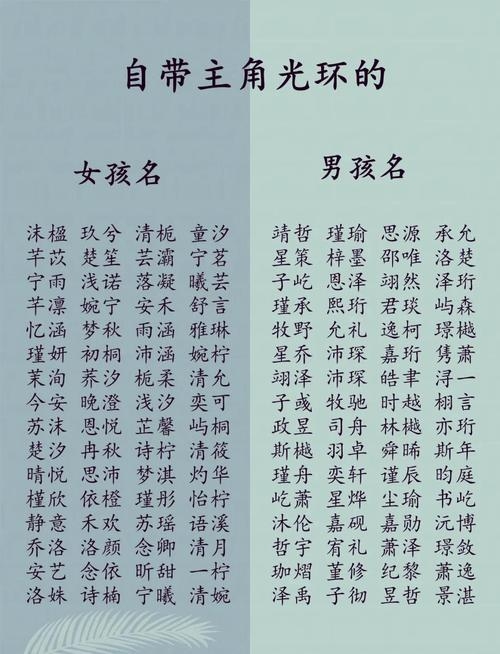 自带主角光环的
女孩名
沫楹 玖兮 清栀 童汐
芊苡 楚笙 芸灞 宁茗
宁雨 浅诺 落凝 曦芸
芊凛 婉宁 安禾 舒言
忆涵 梦秋 雨涵 雅琳
瑾妍 初桐 沛涵 婉柠
茉洵 荞汐 栀柔 清允
今安 晚澄 浅汐 奕可
苏沫 恩悦 芷馨 屿桐
楚汐 冉秋 诗柠 清筱
晴悦 思沛 梦淇 灼华
槿欣 依橙 瑾彤 怡柠
静意 禾欢 苏瑶 语溪
乔洛 洛颜 念卿 清月
安艺 念依 昕甜 一柠
洛姝 诗楠 宁曦 清婉
男孩名
靖哲 瑾瑜 思源 承允
星策 梓墨 邵唯 洛楚
子屹 恩泽 翊然 泽珩
瑾承 熙珩 君琰 屿森
牧野 允礼 逸柯 璟樾
星乔 沛琛 嘉珩 隽萧
翊泽 沛琛 皓聿 浔一
子彧 牧驰 时越 栩言
政昱 司舟 林樾 亦珩
斯樾 羽卓 舜晞 斯年
瑾舟 奕轩 谨辰 昀庭
屹萧 星烨 尘瑜 书屹
沐伦 嘉砚 嘉勋 沅博
哲宇 宥礼 萧泽 璟敛
珈熠 堇修 纪黎 萧逸
泽禹 子彻 昱哲 景湛